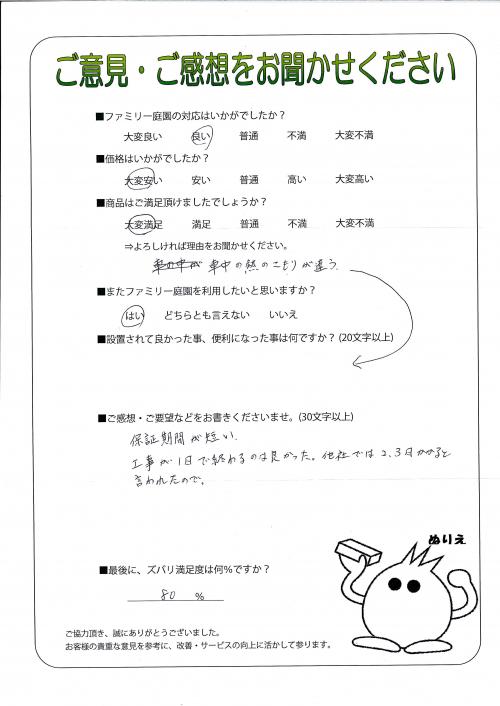 ご意見・ご感想をお聞かせください
■ファミリー庭園の対応はいかがでしたか？
大変良い 良い 普通 不満 大変不満
■価格はいかがでしたか？
大変安い 安い 普通 高い 大変高い
■商品はご満足頂けましたでしょうか？
大変満足 満足 普通 不満 大変不満
⇒よろしければ理由をお聞かせください。
車の中が 車中の熱のこもりが違う
■またファミリー庭園を利用したいと思いますか？
はい どちらとも言えない いいえ
■設置されて良かった事、便利になった事は何ですか？(20文字以上)
■ご感想・ご要望などをお書きくださいませ。(30文字以上)
保証期間が短い。
工事が1日で終わるのは良かった。他社では2、3日かかると
言われたので。
ぬりえ
■最後に、ズバリ満足度は何%ですか？
80 %
ご協力頂き、誠にありがとうございました。
お客様の貴重な意見を参考に、改善・サービスの向上に活かして参ります。